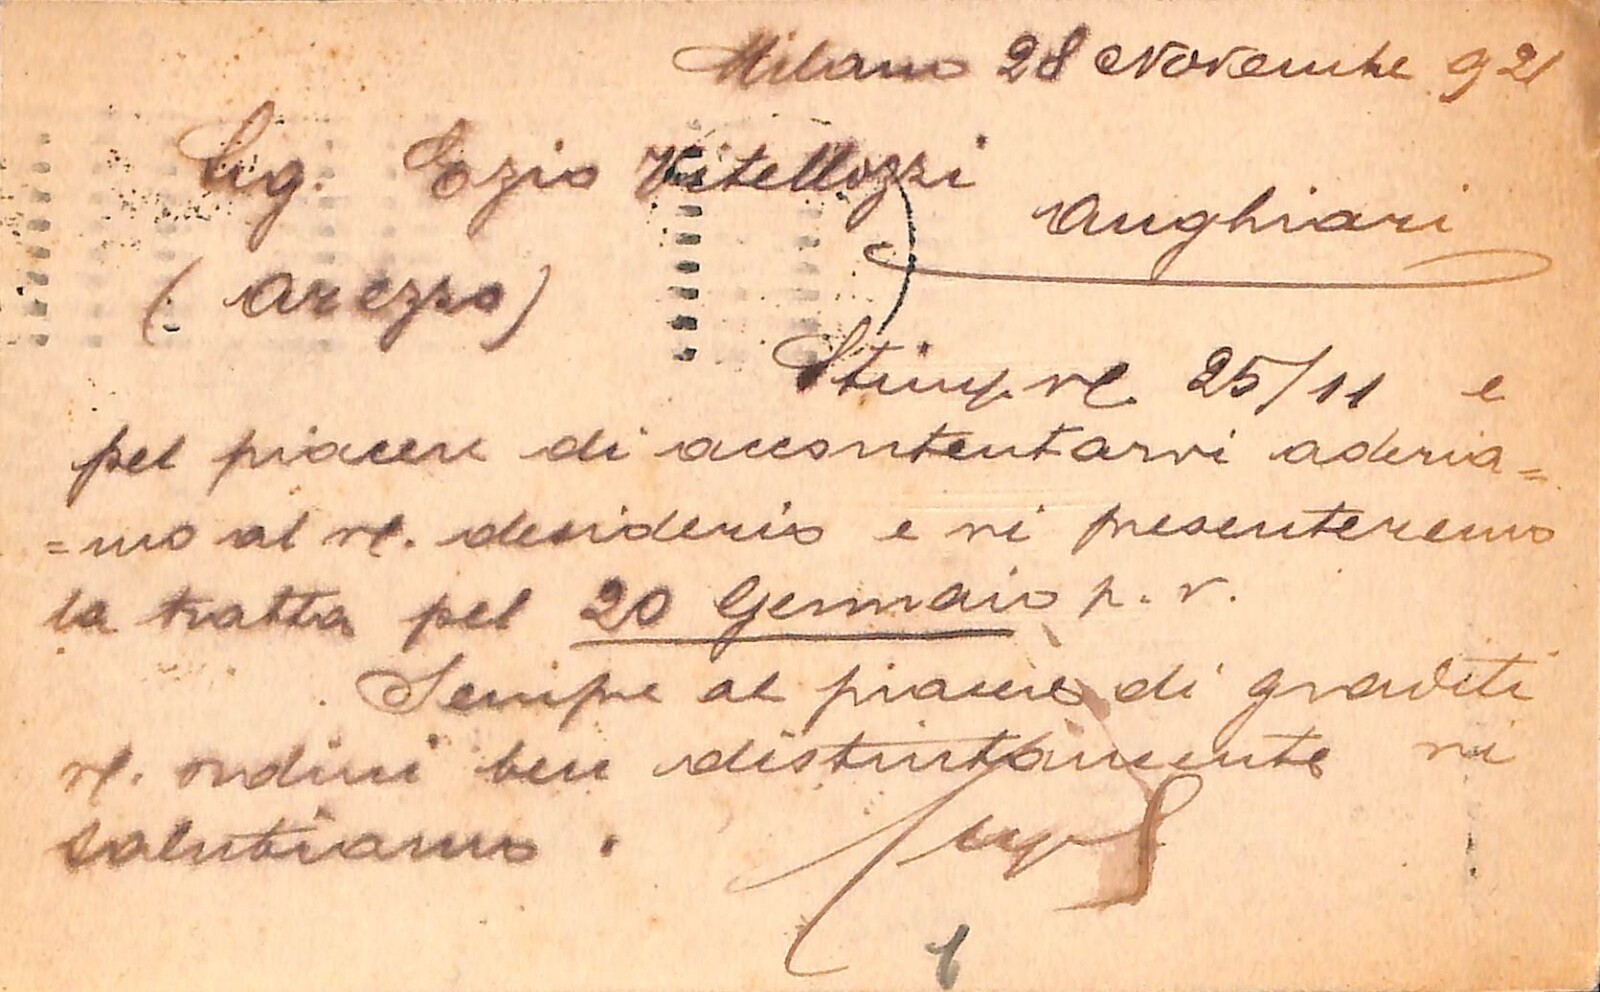 Milano 28 Novembre 921
Sig. Ezio Vitellozzi
Anghiari
(Arezzo)
Stim. vs. 25/11 e
pel piacere di accontentarvi aderia=
=mo al vs. desiderio e vi presenteremo
la tratta pel 20 Gennaio p. v.
Sempre al piacere di graditi
vs. ordini ben distintamente vi
salutiamo.